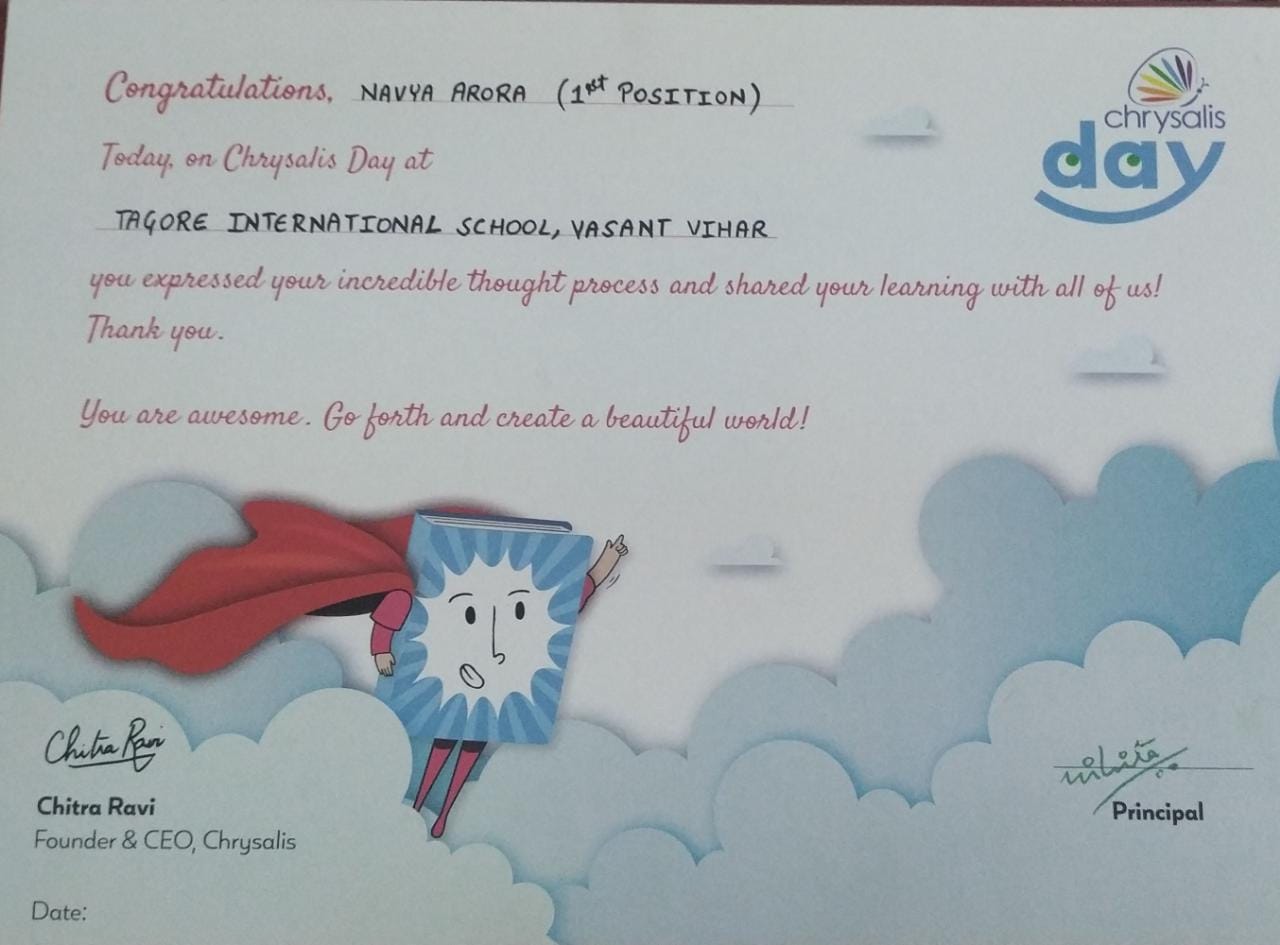 Congratulations, NAVYA ARORA (1st POSITION)
chrysalis
day
Today, on Chrysalis Day at
TAGORE INTERNATIONAL SCHOOL, VASANT VIHAR
you expressed your incredible thought process and shared your learning with all of us!
Thank you.
You are awesome. Go forth and create a beautiful world!
Chitra Ravi
Chitra Ravi
Founder & CEO, Chrysalis
Principal
Date: